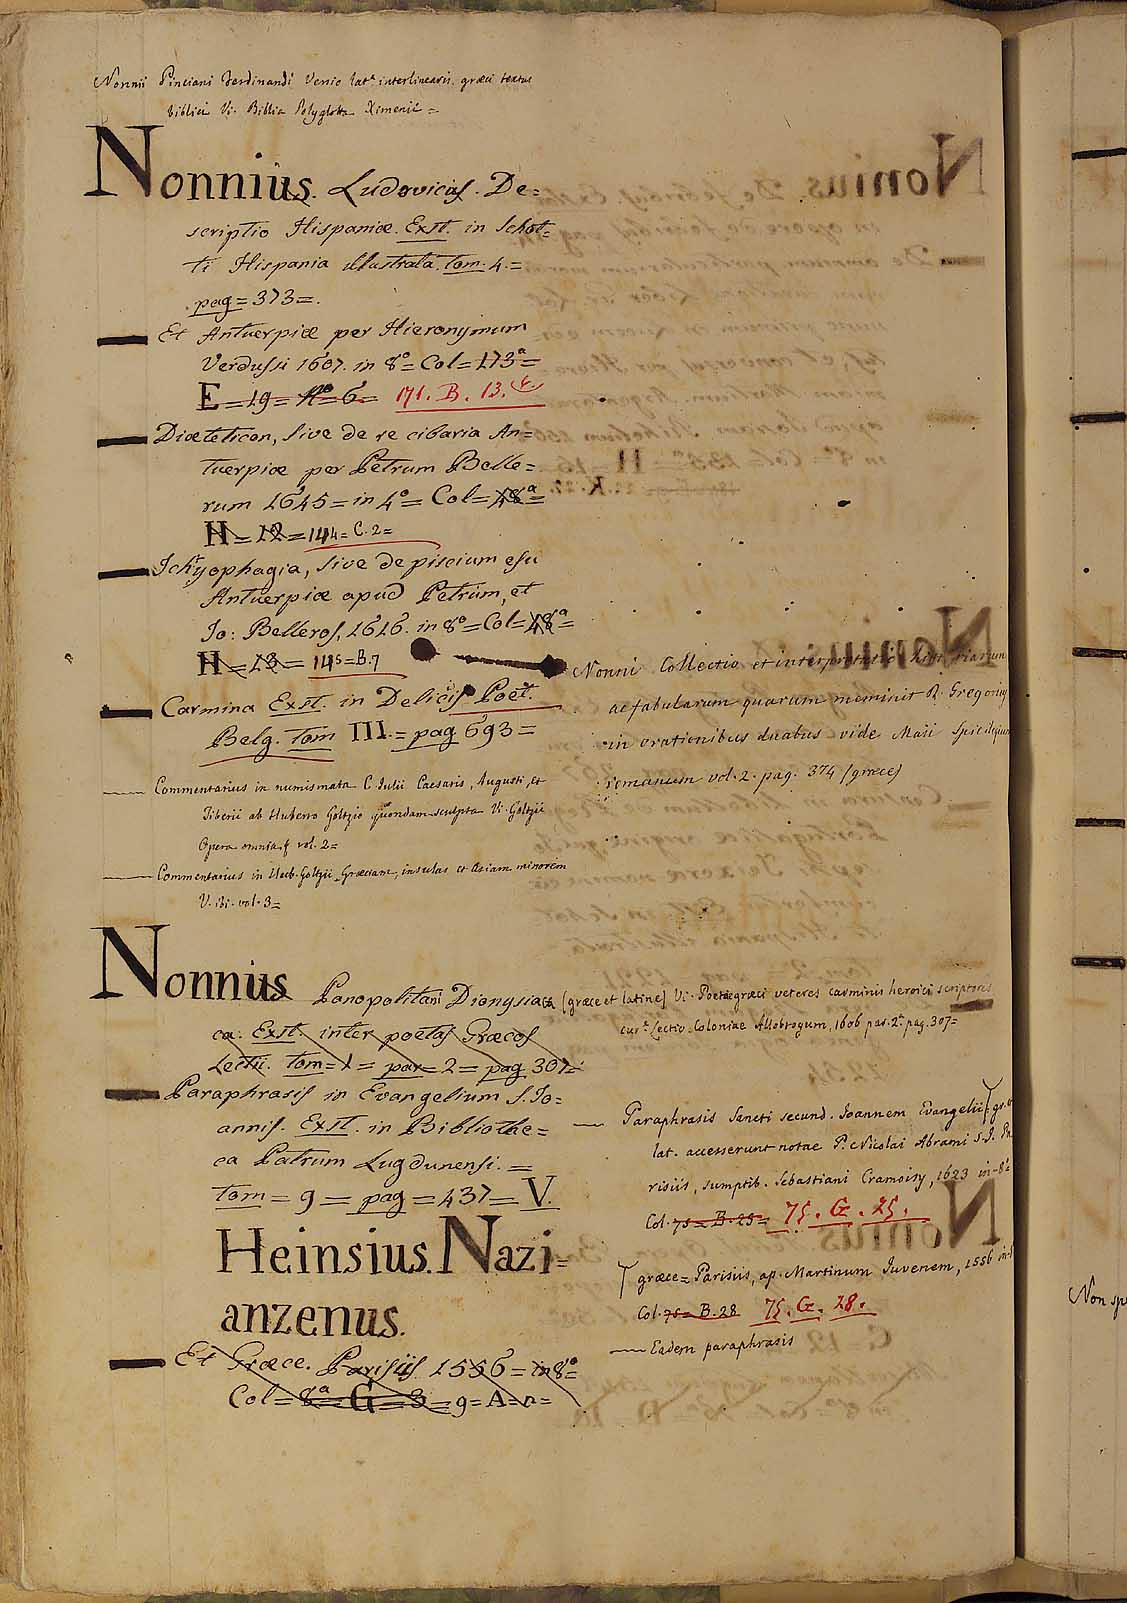 Nonnii Pinciani Ferdinandi Versio lat.ª interlinearis græci textus
biblici Vi. Biblia Polyglotta Ximenii =
Nonnius. Ludovicus. De=
scriptio Hispaniæ. Exst. in Schot=
ti Hispania illustrata. tom. 4. =
pag = 373 =.
Et Antuerpiæ per Hieronymum
Verdussi 1607. in 8º = Col = 173ª =
E = 19 = Nº = 6 = 171. B. 13.
Diæteticon, sive de re cibaria An=
tuerpiæ per Petrum Belle=
rum 1645 = in 4º = Col = 48ª =
H = 12 = 144 = C. 2 =
Ichtyophagia, sive de piscium esu
Antuerpiæ apud Petrum, et
Jo: Belleros, 1616. in 8º = Col = 48ª =
H = 13 = 145 = B. 7
Carmina Exst. in Delicijs Poet.
Belg. tom III. = pag 693 =
Commentarius in numismata C. Julii Caesaris, Augusti, et
Tiberii ab Huberto Goltzio quondam sculpta Vi. Goltzii
Opera omnia vol. 2 =
Commentarius in Hub. Goltzii Græciam, insulas et Asiam minorem
V. Bi. vol. 3 =
Nonni Collectio et interpretatio historiarum
ac fabularum quarum meminit D. Gregorius
in orationibus duabus vide Maii Spicilegium
romanum vol. 2. pag. 374 (græce)
Nonnius Panopolitani Dionysiaca (græce et latine) Vi. Poetæ græci veteres carminis heroici scriptores
cur.ª Lectio. Coloniae Allobrogum, 1606 par. 2ª pag. 307 =
ca. Exst. inter poetas Græcos
Lectii. tom = 1 = par = 2 = pag 307 =
Paraphrasis in Evangelium S. Jo=
annis. Exst. in Bibliothe=
ca Patrum Lugdunensi. =
tom = 9 = pag = 437 = V.
Heinsius. Nazi=
anzenus.
Et Græce. Parisiis 1556 = in 8º =
Col = 8ª = G = 3 = 9 = A = n =
Paraphrasis Sancti secund. Joannem Evangelii gr. et
lat. accesserunt notae P. Nicolai Abrami S. J. Pa
risiis, sumptib. Sebastiani Cramoisy, 1623 in-8º
Col. 75 = B. 25 = 75. G. 25.
græce = Parisiis, ap. Martinum Juvenem, 1556 in-8
Col. 75 = B. 28 75. G. 28.
Eadem paraphrasis
Non